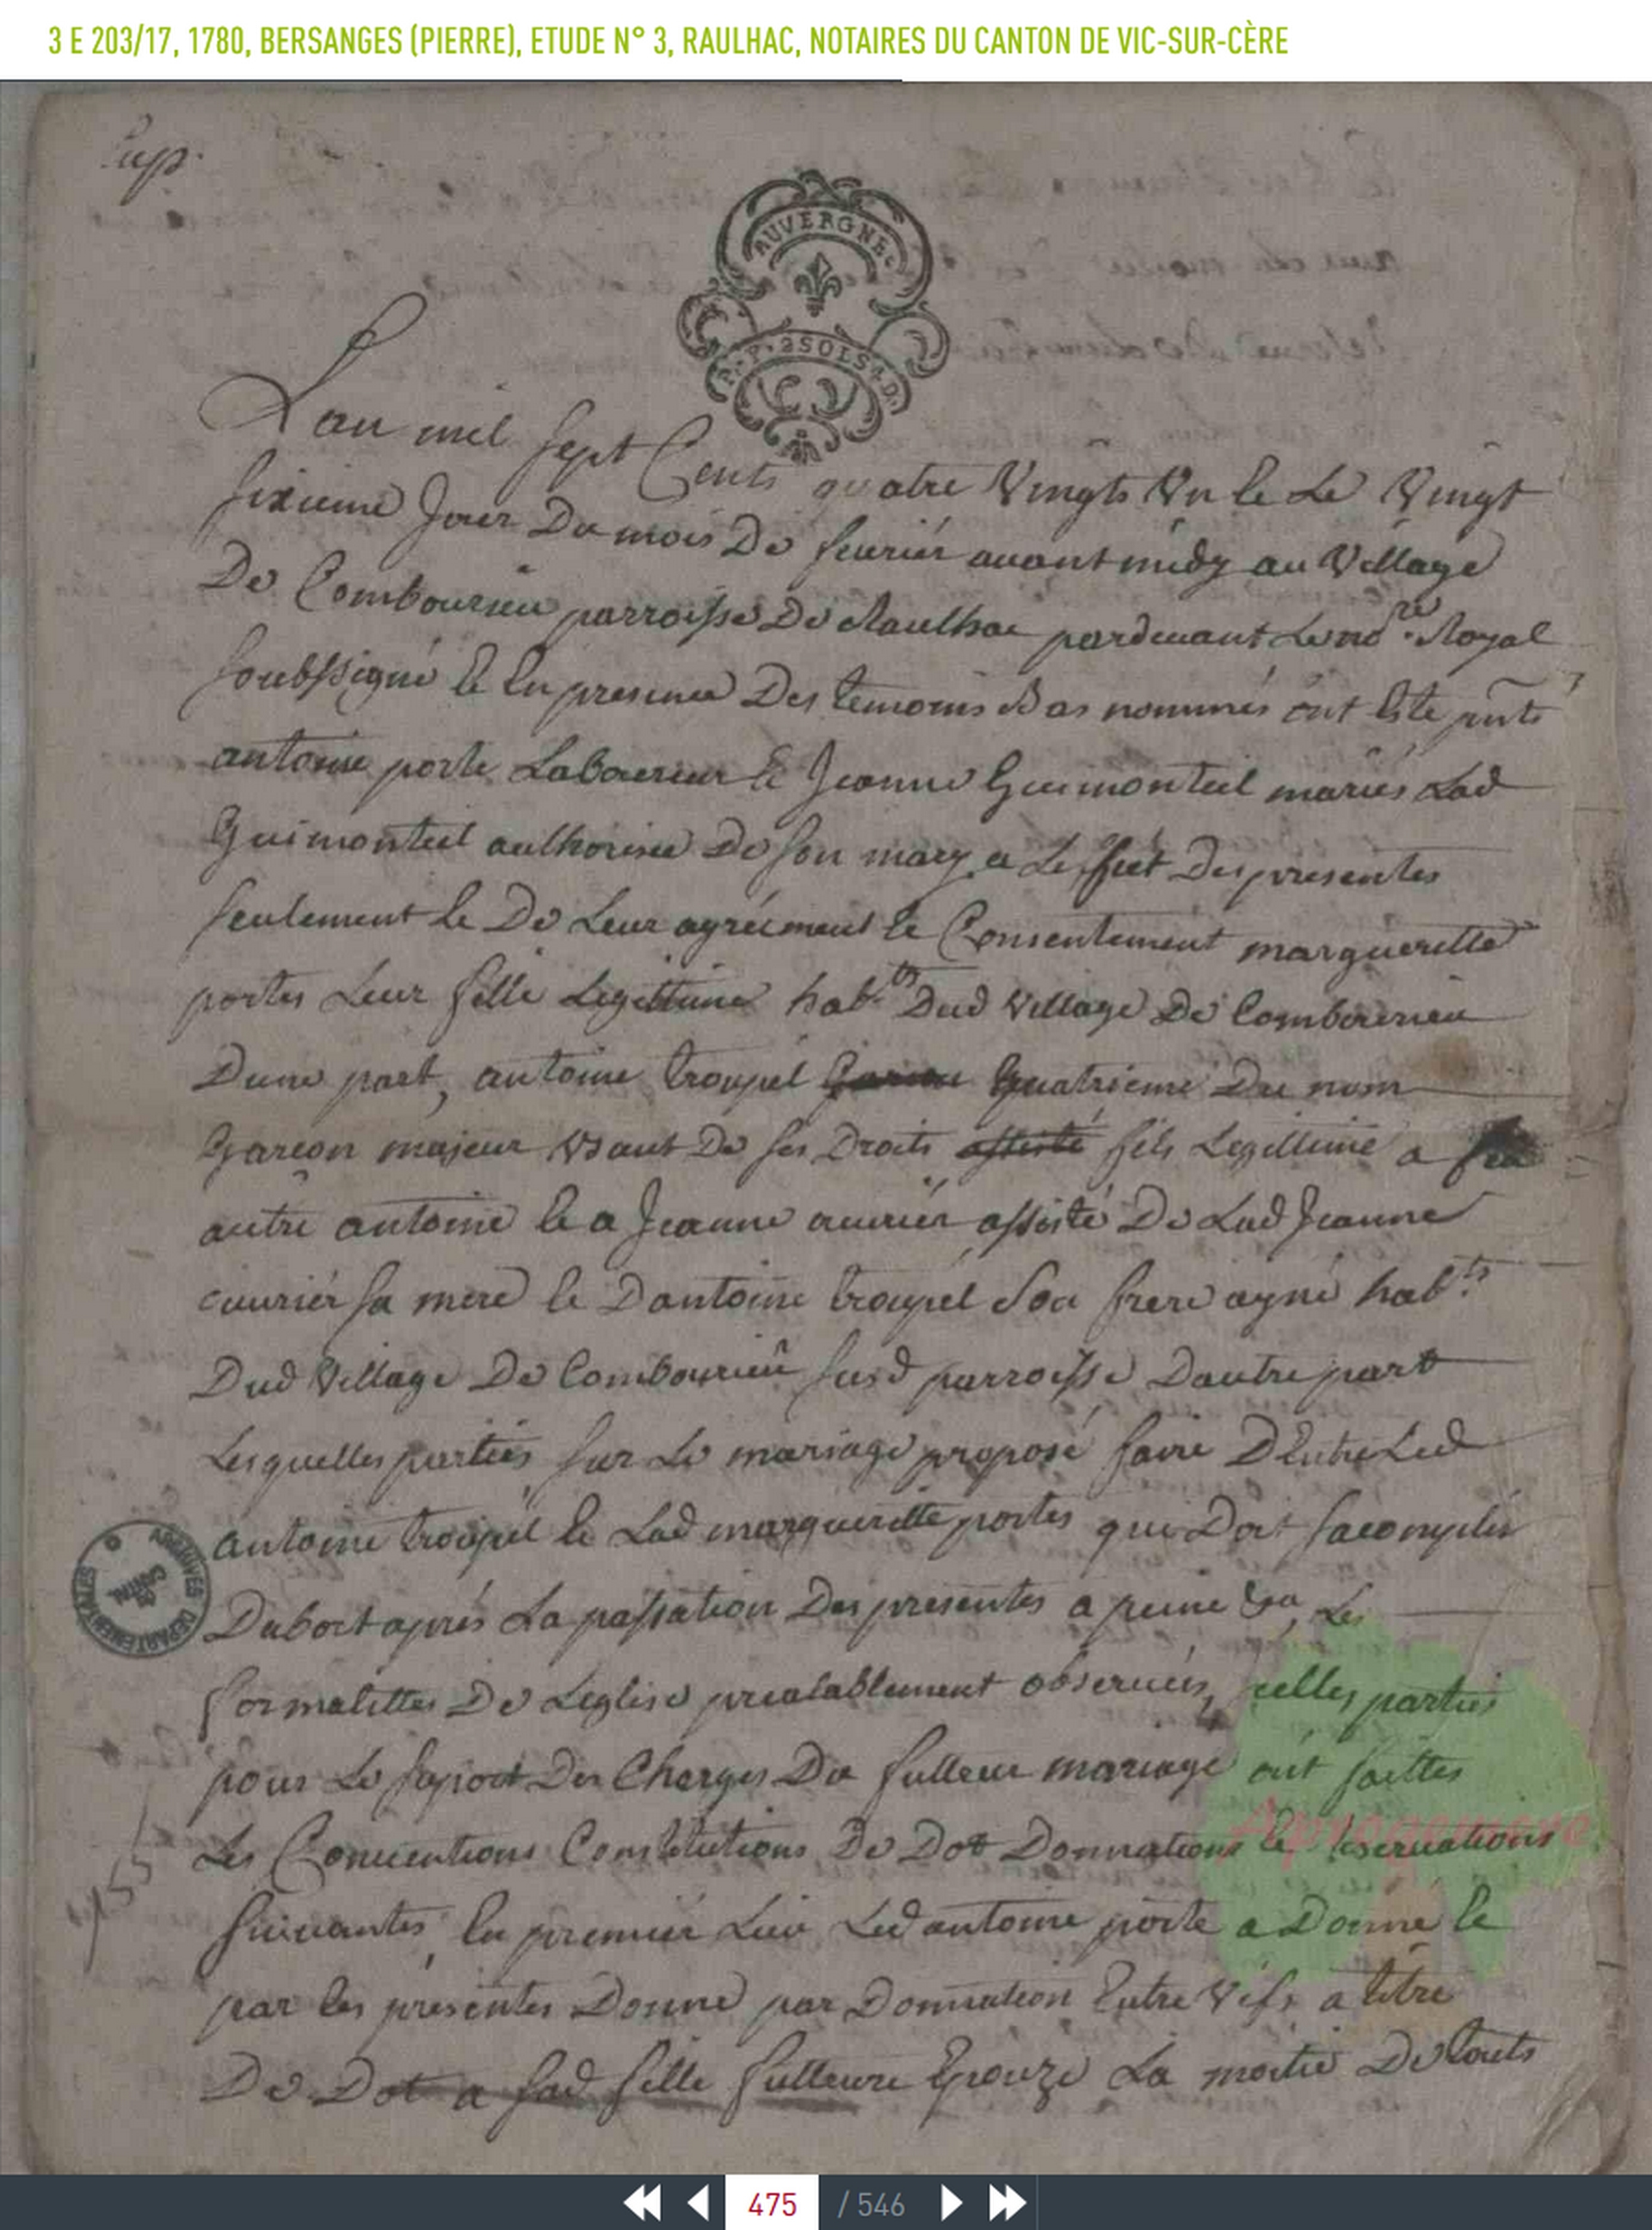 3 E 203/17, 1780, BERSANGES (PIERRE), ETUDE N° 3, RAULHAC, NOTAIRES DU CANTON DE VIC-SUR-CÈRE
AUVERGNE
2SOLS4D.
Lan mil sept Cents quatre Vingts Un & Le Vingt
sixieme Jour Du mois De fevrier avant midy au Village
De Combourieu parroisse De Raulhac pardevant Le no.re Royal
soubssigné & En presence Des temoins Bas nommés ont Eté pnts
antoine porte Laboureur & Jeanne Guimonteil mariés Lad
Guimonteil authorisée De son mary a Leffet Des presentes
seulement & De Leur agréement & Consentement marguerette
portes Leur fille Legittime hab.ts Dud Village De Combourieu
Dune part, antoine troupel quatrieme Du nom
Garcon majeur Usant De ses Droits assisté fils Legittime a feu
autre antoine & a Jeanne cuvrier assisté De Lad Jeanne
cuvrier sa mere & Dantoine troupel Son frere ayné hab.ts
Dud Village De Combourieu susd parroisse Dautre part
Lesquelles parties sur Le mariage proposé faire DEntre Led
antoine troupel & Lad marguerette portes qui Doit saccomplir
Dabort aprés La passation Des presentes a peine &a, Les
formalittes De Leglise prealablement observées, jcelles parties
pour Le suport Des Charges Du futteur mariage ont faittes
Les Conventions Constitutions De Dot Donnations & Reservations
suivantes, En premier Lieu Led antoine porte a Donné &
par Ces presentes Donne par Donnation Entre Vifs a titre
De Dot a sad fille futteure Epouze La moitié De touts
ARCHIVES DEPARTEMENTALES
CANTAL
Aprogemere
475 / 546